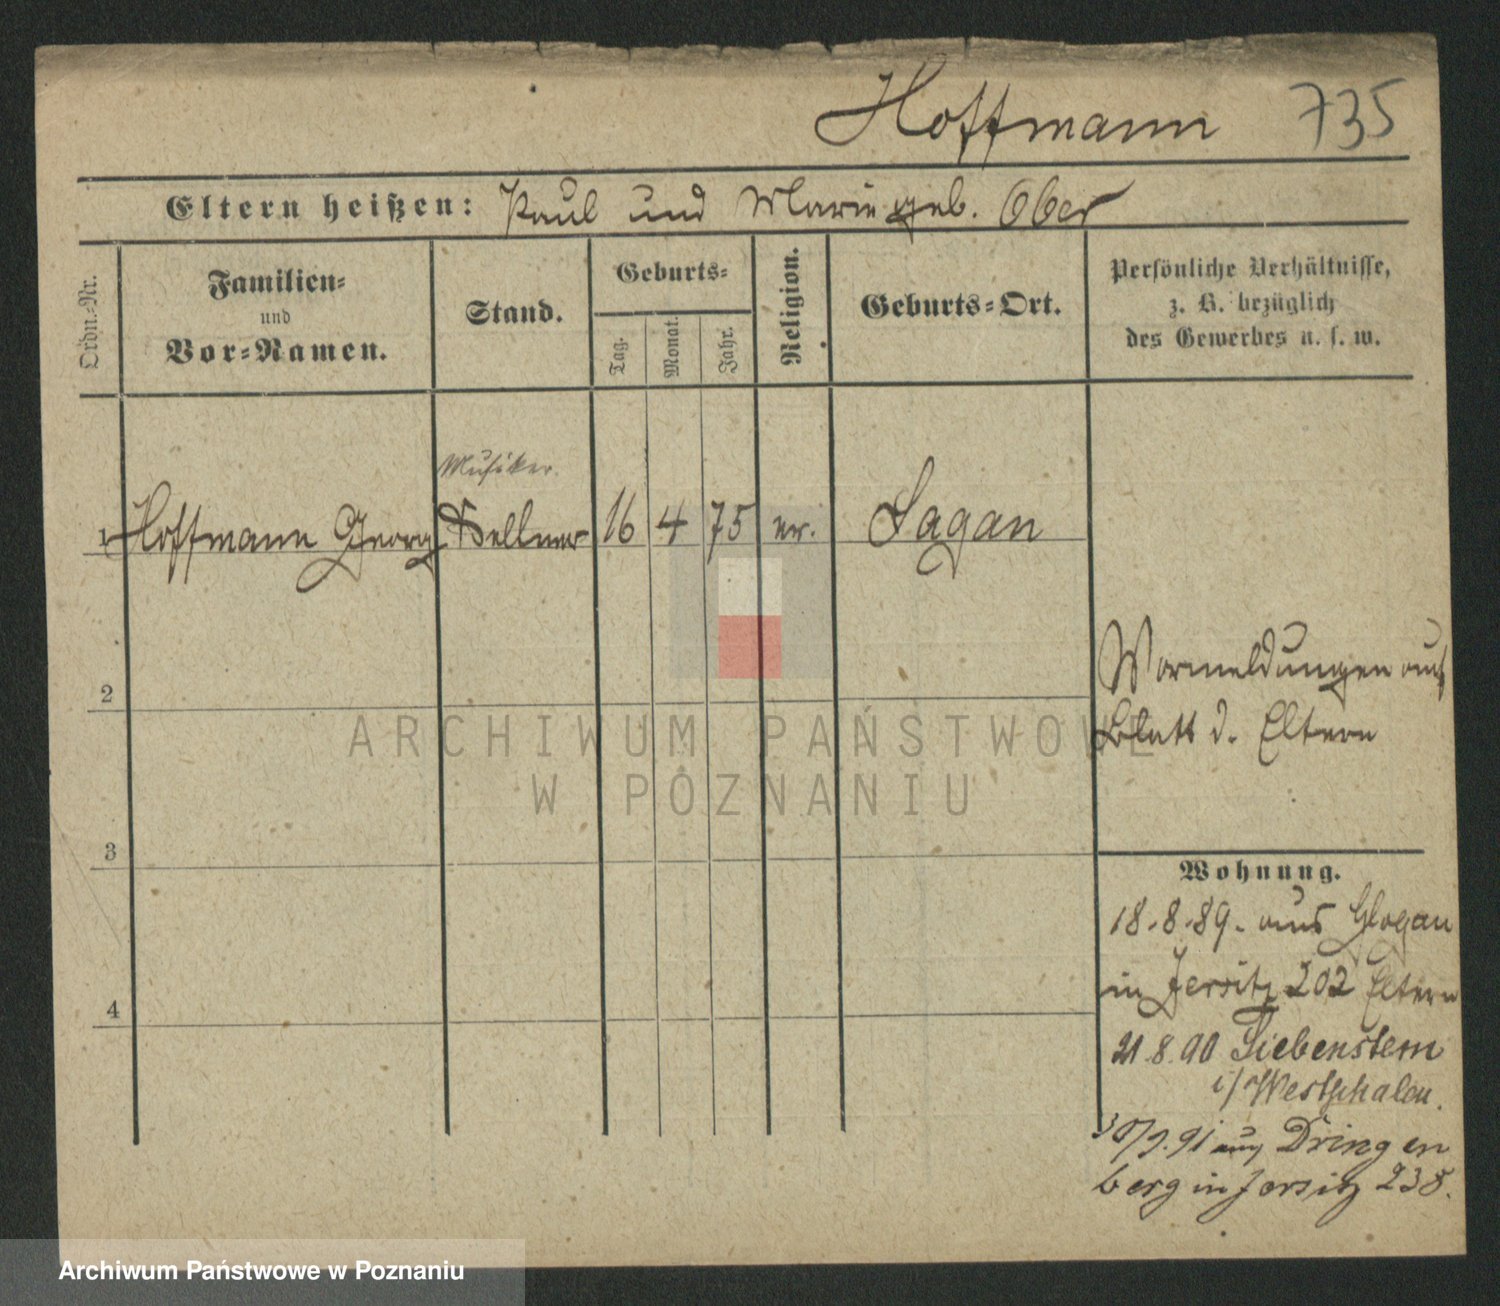 Hoffmann 735
Eltern heißen: Paul und Marie geb. Ober
Ordn.-Nr.
Familien-
und
Vor-Namen.
Stand.
Geburts-
Tag.
Monat.
Jahr.
Religion.
Geburts-Ort.
Persönliche Verhältnisse,
z. B. bezüglich
des Gewerbes u. s. w.
Musiker.
1 Hoffmann Georg Kellner 16 4 75 ev. Sagan
2
3
4
Vormeldungen auf
Blatt d. Eltern
Wohnung.
18.8.89. aus Glogau
in Jersitz 202 Eltern
21.8.90 Siebenstern
i/Westphalen.
30/9.91 aus Dringen
berg in Jersitz 238.
ARCHIWUM PAŃSTWOWE
W POZNANIU
Archiwum Państwowe w Poznaniu